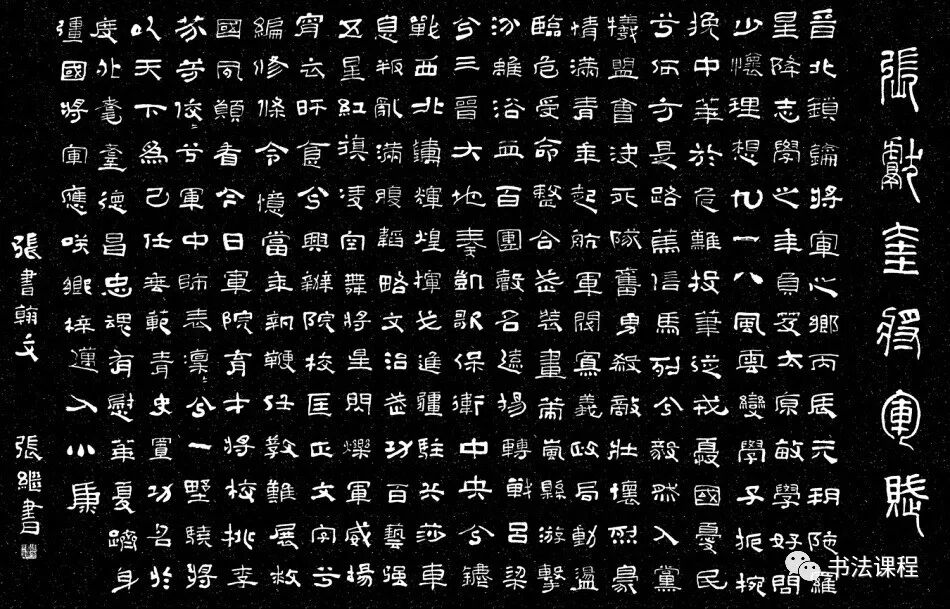 張獻奎將軍賦
晉北鎖鑰將軍心鄉丙辰元玥陵羅
星降志學之年負笈太原敏學好問
少懷理想九一八風雲變學子扼腕
挽中華於危難投筆從戎憂國憂民
兮何方是路薦信馬列兮毅然入黨
犧盟會決死隊舊勇殺敵壯懷烈豪
情滿青年起航軍閥寫義政局動盪
臨危受命整合益裝畫策嵐縣游擊
汾雖浴血百團觳名遠揚轉戰呂梁
兮三晉大地奏凱歌保衛中央兮鏽
戰西北鏽輝煌揮戈進疆駐兵莎車
息叛亂滿腹韜略文治武功百藝強
五星紅旗凌空舞將星閃爍軍威揚
宵衣旰食兮興辦院校匡正文字兮
編修條令憶當年執鞭任教難展救
國風顛者今日軍院育才將校桃李
芬芳佼兮軍中師表凜兮一野驍將
以天下為己任垂範青史置功名於
度外毫奎德昌忠魂有慰華夏躋身
疆國將軍應咲鄉梓邁入小康
張書翰文
張繼書
书法课程